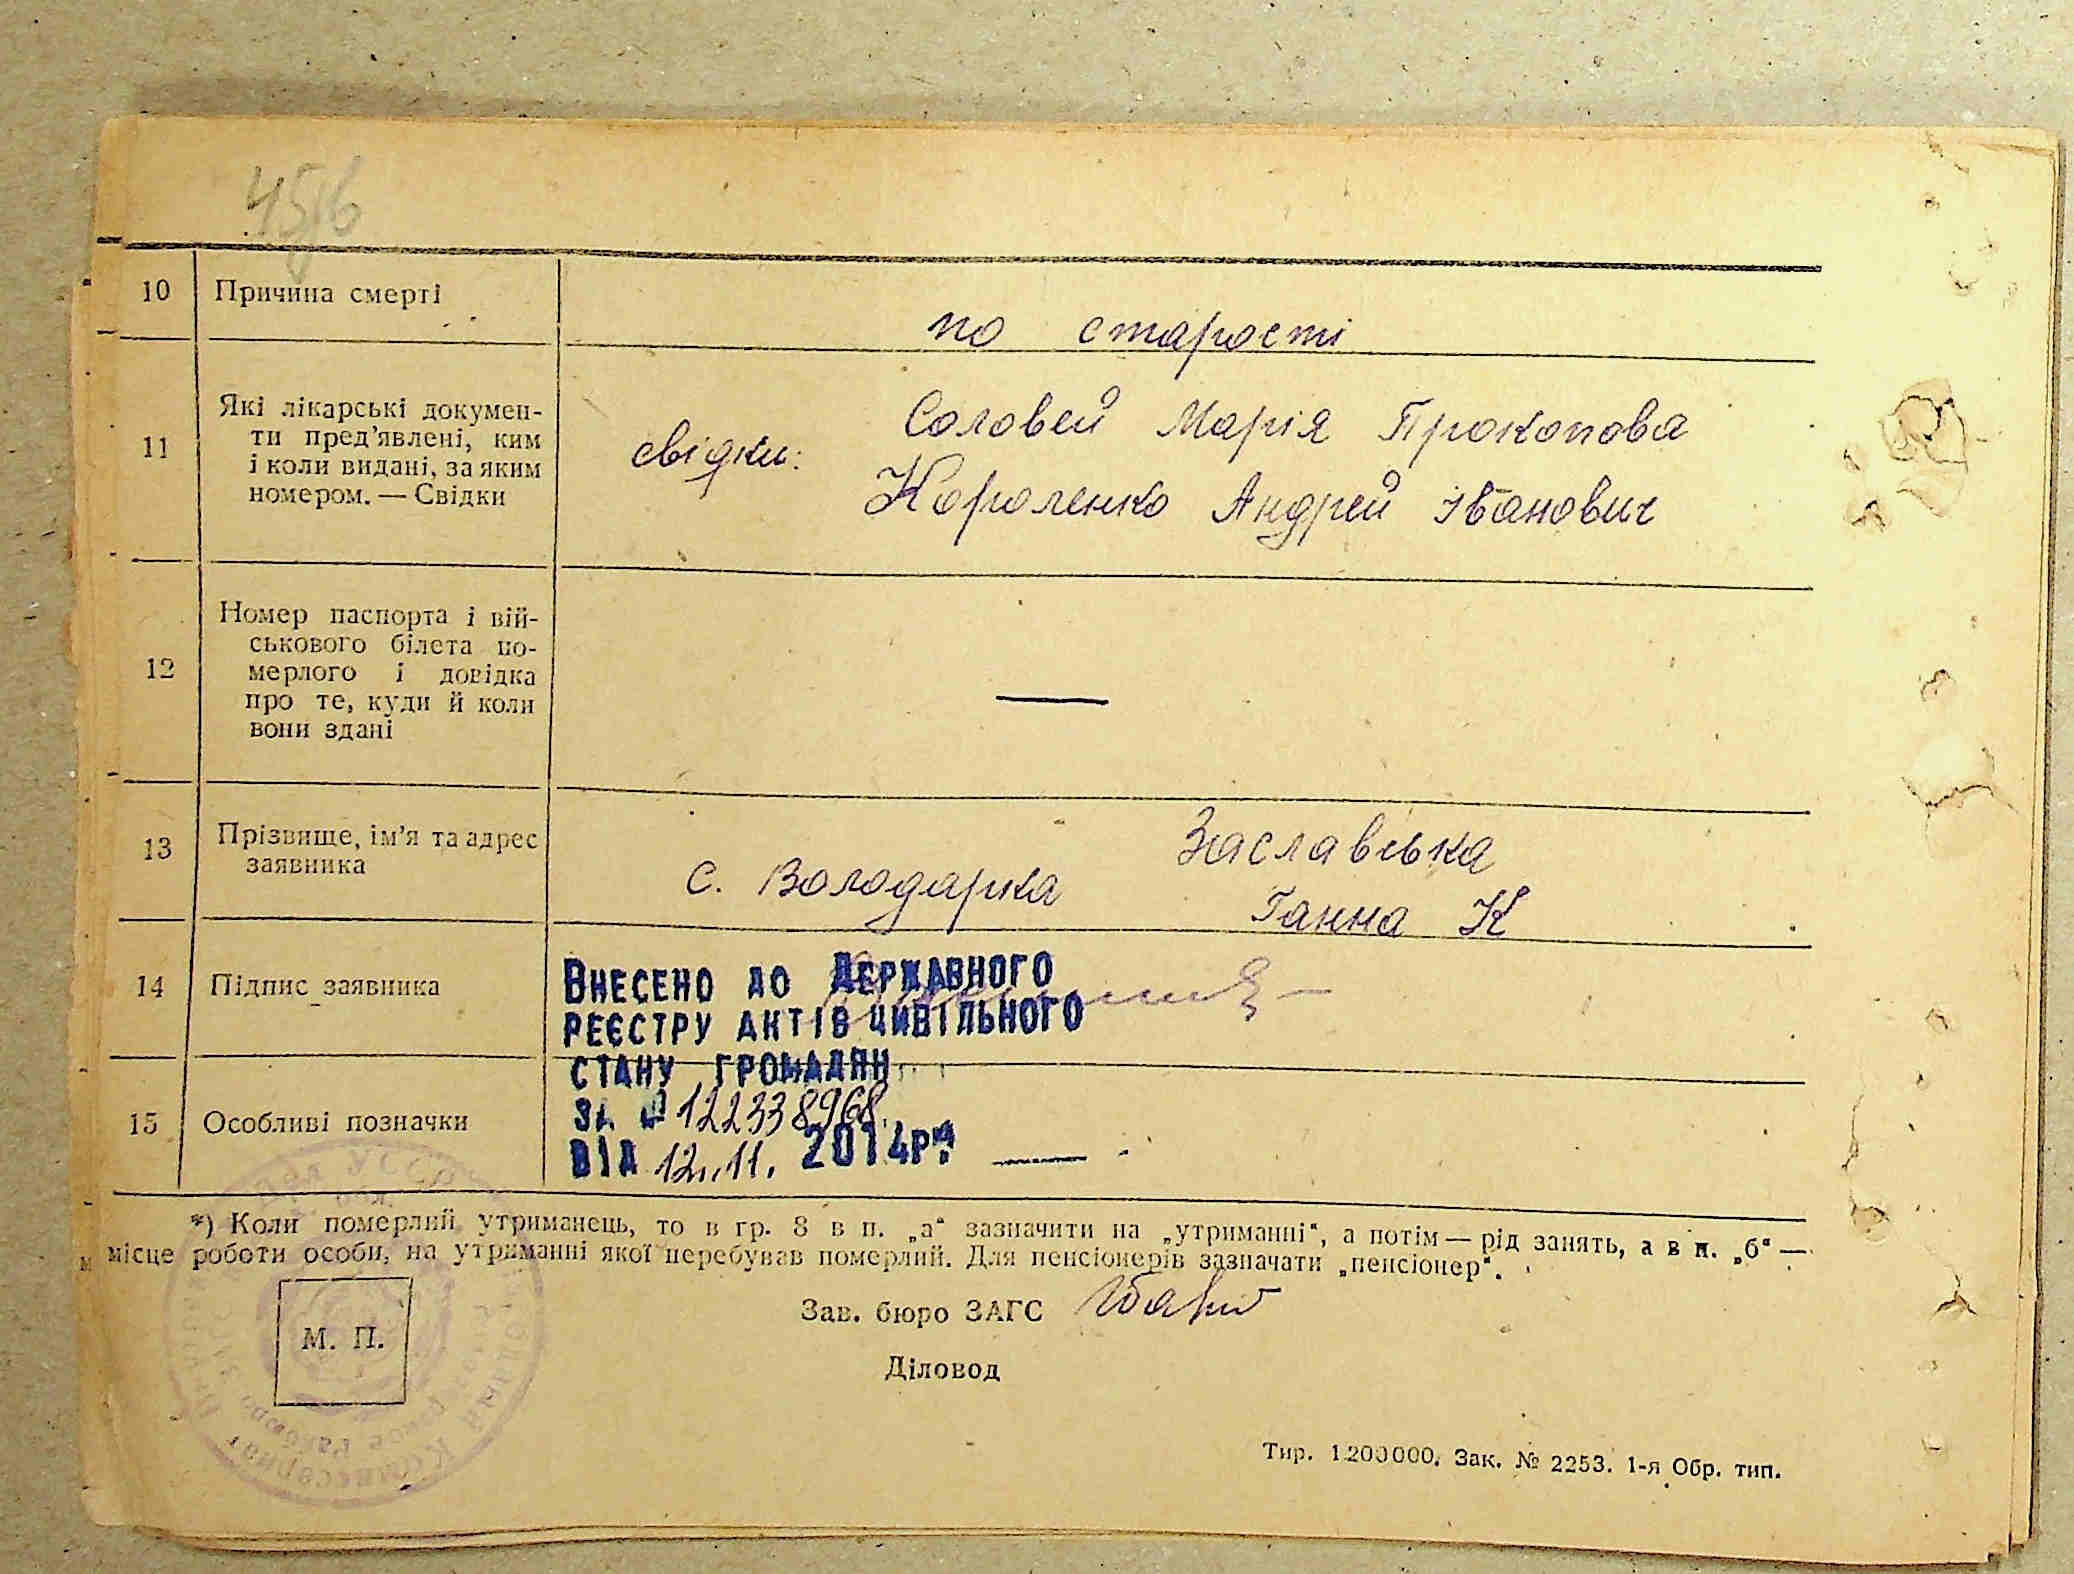 10 Причина смерті
по старості
11 Які лікарські докумен-
ти пред'явлені, ким
і коли видані, за яким
номером. — Свідки
свідки: Соловей Марія Прокопова
Короленко Андрей Іванович
12 Номер паспорта і вій-
ськового білета по-
мерлого і довідка
про те, куди й коли
вони здані
—
13 Прізвище, ім'я та адрес
заявника
Заславська
с. Володарка
Ганна К
14 Підпис заявника
ВНЕСЕНО ДО ДЕРЖАВНОГО
РЕЄСТРУ АКТІВ ЦИВІЛЬНОГО
СТАНУ ГРОМАДЯН
15 Особливі позначки
ЗА № 122338968
ВІД 12.11. 2014р.
*) Коли померлий утриманець, то в гр. 8 в п. „а“ зазначити на „утриманні“, а потім — рід занять, а в п. „б“ —
місце роботи особи, на утриманні якої перебував померлий. Для пенсіонерів зазначати „пенсіонер“.
Зав. бюро ЗАГС
М. П.
Діловод
Тир. 1.200000. Зак. № 2253. 1-я Обр. тип.